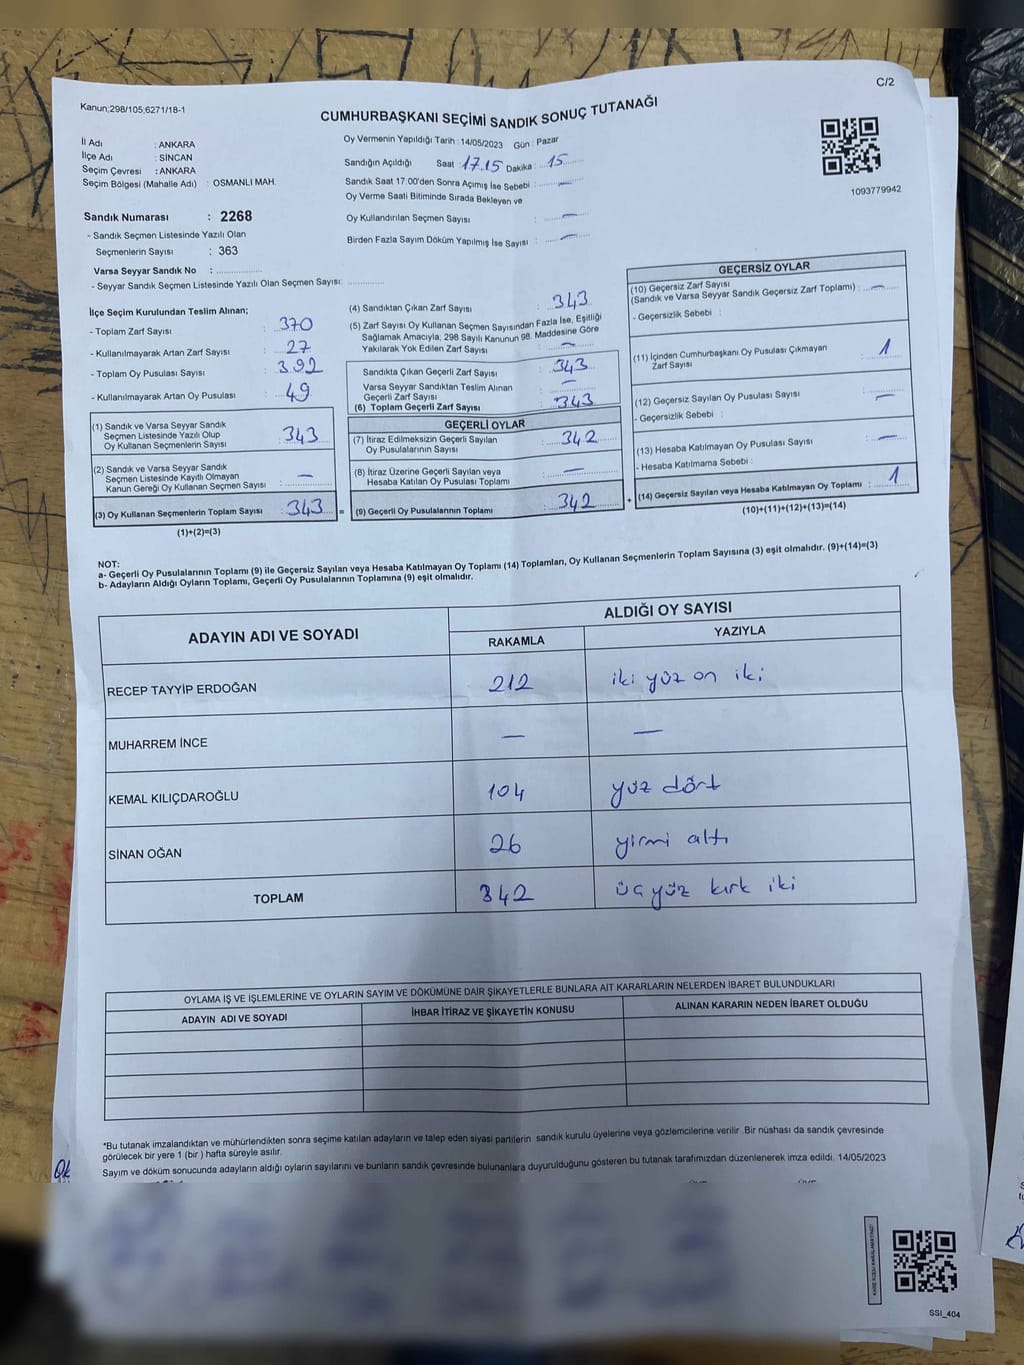 C/2
Kanun;298/105;6271/18-1
CUMHURBAŞKANI SEÇİMİ SANDIK SONUÇ TUTANAĞI
İl Adı : ANKARA
İlçe Adı : SİNCAN
Seçim Çevresi : ANKARA
Seçim Bölgesi (Mahalle Adı) : OSMANLI MAH.
Sandık Numarası : 2268
- Sandık Seçmen Listesinde Yazılı Olan
Seçmenlerin Sayısı : 363
Varsa Seyyar Sandık No :
- Seyyar Sandık Seçmen Listesinde Yazılı Olan Seçmen Sayısı:
Oy Vermenin Yapıldığı Tarih : 14/05/2023 Gün : Pazar
Sandığın Açıldığı Saat : 17.15 Dakika : 15
Sandık Saat 17:00'den Sonra Açılmış İse Sebebi : —
Oy Verme Saati Bitiminde Sırada Bekleyen ve
Oy Kullandırılan Seçmen Sayısı : —
Birden Fazla Sayım Döküm Yapılmış İse Sayısı : —
1093779942
İlçe Seçim Kurulundan Teslim Alınan;
- Toplam Zarf Sayısı : 370
- Kullanılmayarak Artan Zarf Sayısı : 27
- Toplam Oy Pusulası Sayısı : 392
- Kullanılmayarak Artan Oy Pusulası : 49
(1) Sandık ve Varsa Seyyar Sandık
Seçmen Listesinde Yazılı Olup
Oy Kullanan Seçmenlerin Sayısı : 343
(2) Sandık ve Varsa Seyyar Sandık
Seçmen Listesinde Kayıtlı Olmayan
Kanun Gereği Oy Kullanan Seçmen Sayısı : —
(3) Oy Kullanan Seçmenlerin Toplam Sayısı : 343 =
(1)+(2)=(3)
(4) Sandıktan Çıkan Zarf Sayısı : 343
(5) Zarf Sayısı Oy Kullanan Seçmen Sayısından Fazla İse, Eşitliği
Sağlamak Amacıyla; 298 Sayılı Kanunun 98. Maddesine Göre
Yakılarak Yok Edilen Zarf Sayısı : —
Sandıkta Çıkan Geçerli Zarf Sayısı : 343
Varsa Seyyar Sandıktan Teslim Alınan
Geçerli Zarf Sayısı : —
(6) Toplam Geçerli Zarf Sayısı : 343
GEÇERLİ OYLAR
(7) İtiraz Edilmeksizin Geçerli Sayılan
Oy Pusulalarının Sayısı : 342
(8) İtiraz Üzerine Geçerli Sayılan veya
Hesaba Katılan Oy Pusulası Toplamı : —
(9) Geçerli Oy Pusulalarının Toplamı : 342 +
GEÇERSİZ OYLAR
(10) Geçersiz Zarf Sayısı
(Sandık ve Varsa Seyyar Sandık Geçersiz Zarf Toplamı) : —
- Geçersizlik Sebebi :
(11) İçinden Cumhurbaşkanı Oy Pusulası Çıkmayan
Zarf Sayısı : 1
(12) Geçersiz Sayılan Oy Pusulası Sayısı : —
- Geçersizlik Sebebi :
(13) Hesaba Katılmayan Oy Pusulası Sayısı : —
- Hesaba Katılmama Sebebi :
(14) Geçersiz Sayılan veya Hesaba Katılmayan Oy Toplamı : 1
(10)+(11)+(12)+(13)=(14)
NOT:
a- Geçerli Oy Pusulalarının Toplamı (9) ile Geçersiz Sayılan veya Hesaba Katılmayan Oy Toplamı (14) Toplamları, Oy Kullanan Seçmenlerin Toplam Sayısına (3) eşit olmalıdır. (9)+(14)=(3)
b- Adayların Aldığı Oyların Toplamı, Geçerli Oy Pusulalarının Toplamına (9) eşit olmalıdır.
ADAYIN ADI VE SOYADI ALDIĞI OY SAYISI
RAKAMLA YAZIYLA
RECEP TAYYİP ERDOĞAN 212 iki yüz on iki
MUHARREM İNCE — —
KEMAL KILIÇDAROĞLU 104 yüz dört
SİNAN OĞAN 26 yirmi altı
TOPLAM 342 üç yüz kırk iki
OYLAMA İŞ VE İŞLEMLERİNE VE OYLARIN SAYIM VE DÖKÜMÜNE DAİR ŞİKAYETLERLE BUNLARA AİT KARARLARIN NELERDEN İBARET BULUNDUKLARI
ADAYIN ADI VE SOYADI İHBAR İTİRAZ VE ŞİKAYETİN KONUSU ALINAN KARARIN NEDEN İBARET OLDUĞU
*Bu tutanak imzalandıktan ve mühürlendikten sonra seçime katılan adayların ve talep eden siyasi partilerin sandık kurulu üyelerine veya gözlemcilerine verilir .Bir nüshası da sandık çevresinde
görülecek bir yere 1 (bir ) hafta süreyle asılır.
Sayım ve döküm sonucunda adayların aldığı oyların sayılarını ve bunların sandık çevresinde bulunanlara duyurulduğunu gösteren bu tutanak tarafımızdan düzenlenerek imza edildi. 14/05/2023
SSI_404